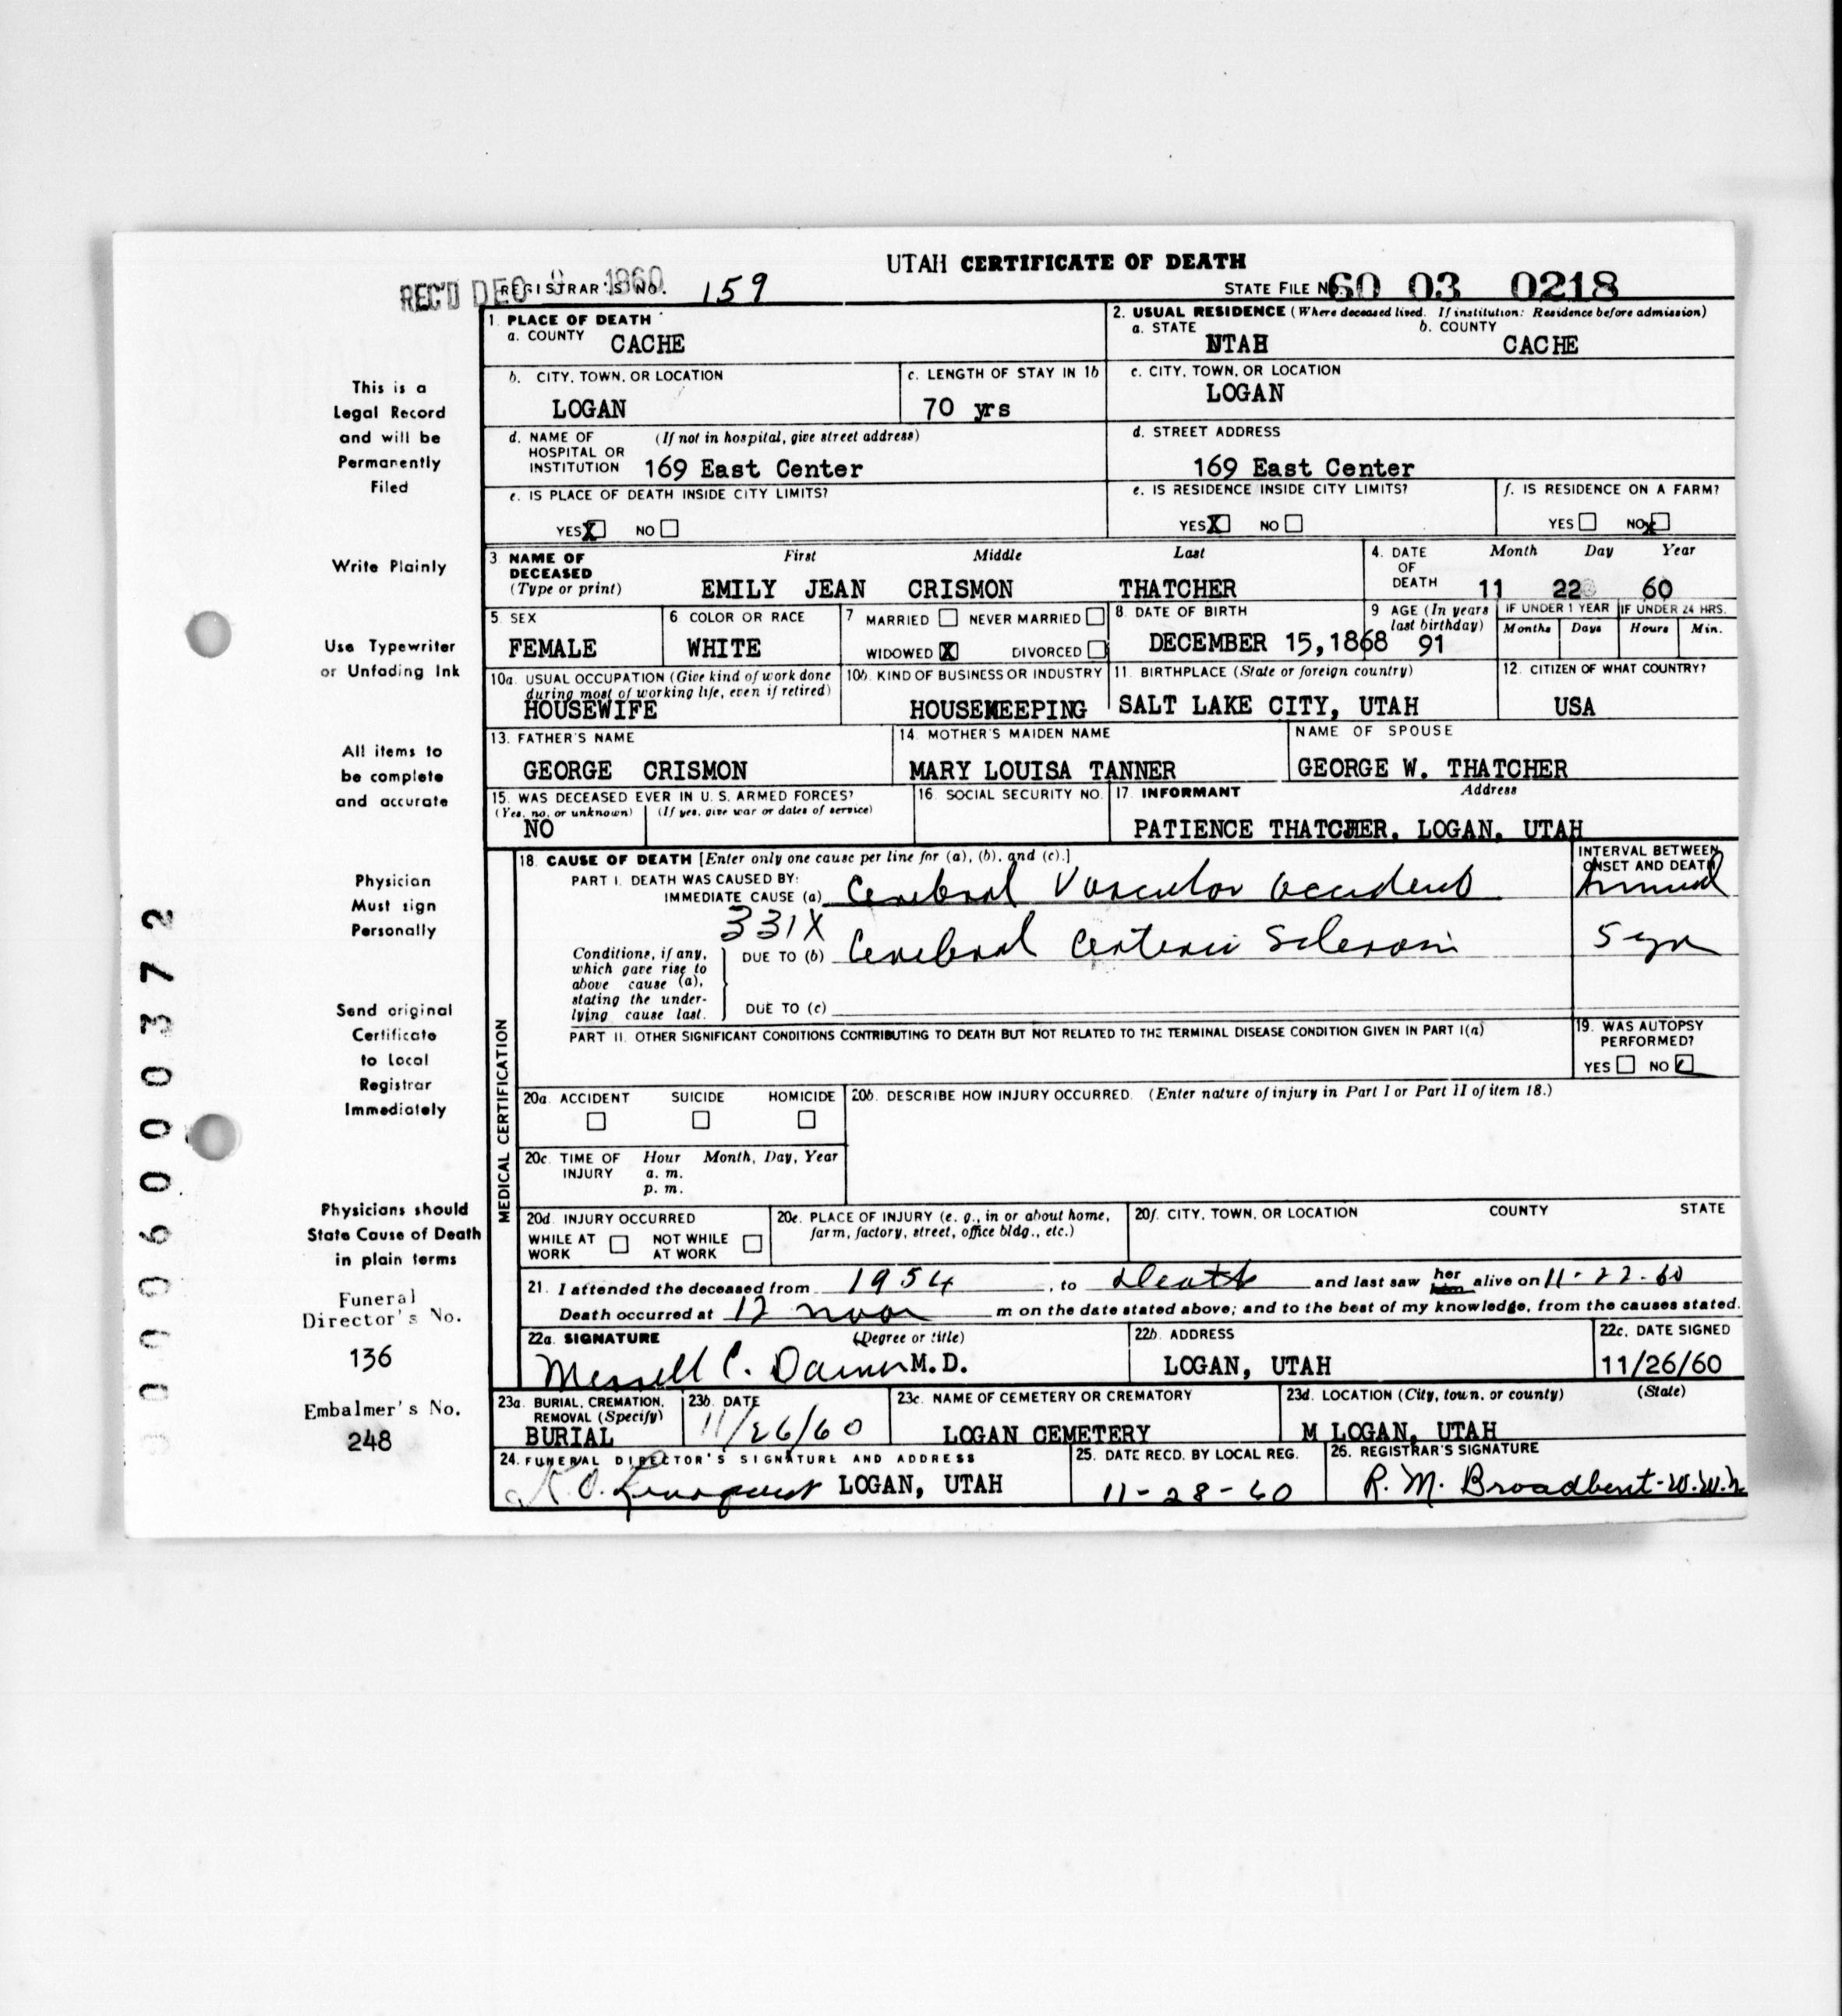 UTAH CERTIFICATE OF DEATH
REC'D DEC 1960 REGISTRAR'S NO. 159 STATE FILE NO. 60 03 0218
1. PLACE OF DEATH
a. COUNTY CACHE
2. USUAL RESIDENCE (Where deceased lived. If institution: Residence before admission)
a. STATE UTAH b. COUNTY CACHE
b. CITY, TOWN, OR LOCATION LOGAN
c. LENGTH OF STAY IN 1b 70 yrs
c. CITY, TOWN, OR LOCATION LOGAN
d. NAME OF HOSPITAL OR INSTITUTION (If not in hospital, give street address) 169 East Center
d. STREET ADDRESS 169 East Center
e. IS PLACE OF DEATH INSIDE CITY LIMITS? YES X NO
e. IS RESIDENCE INSIDE CITY LIMITS? YES X NO
f. IS RESIDENCE ON A FARM? YES NO X
3. NAME OF DECEASED (Type or print) First Middle Last
EMILY JEAN CRISMON THATCHER
4. DATE OF DEATH Month Day Year
11 22 60
5. SEX FEMALE
6. COLOR OR RACE WHITE
7. MARRIED NEVER MARRIED
WIDOWED X DIVORCED
8. DATE OF BIRTH DECEMBER 15, 1868
9. AGE (In years last birthday) 91
IF UNDER 1 YEAR Months Days
IF UNDER 24 HRS. Hours Min.
10a. USUAL OCCUPATION (Give kind of work done during most of working life, even if retired)
HOUSEWIFE
10b. KIND OF BUSINESS OR INDUSTRY
HOUSEKEEPING
11. BIRTHPLACE (State or foreign country)
SALT LAKE CITY, UTAH
12. CITIZEN OF WHAT COUNTRY?
USA
13. FATHER'S NAME
GEORGE CRISMON
14. MOTHER'S MAIDEN NAME
MARY LOUISA TANNER
NAME OF SPOUSE
GEORGE W. THATCHER
15. WAS DECEASED EVER IN U. S. ARMED FORCES?
(Yes, no, or unknown) (If yes, give war or dates of service)
NO
16. SOCIAL SECURITY NO.
17. INFORMANT Address
PATIENCE THATCHER, LOGAN, UTAH
MEDICAL CERTIFICATION
18. CAUSE OF DEATH [Enter only one cause per line for (a), (b), and (c).]
INTERVAL BETWEEN ONSET AND DEATH
PART I. DEATH WAS CAUSED BY:
IMMEDIATE CAUSE (a) Cerebral Vascular accident
331X
Conditions, if any, which gave rise to above cause (a), stating the underlying cause last.
DUE TO (b) Cerebral Arterio Sclerosis 5 yrs
DUE TO (c)
PART II. OTHER SIGNIFICANT CONDITIONS CONTRIBUTING TO DEATH BUT NOT RELATED TO THE TERMINAL DISEASE CONDITION GIVEN IN PART I(a)
19. WAS AUTOPSY PERFORMED?
YES NO
20a. ACCIDENT SUICIDE HOMICIDE
20b. DESCRIBE HOW INJURY OCCURRED. (Enter nature of injury in Part I or Part II of item 18.)
20c. TIME OF INJURY Hour Month, Day, Year
a. m.
p. m.
20d. INJURY OCCURRED
WHILE AT WORK NOT WHILE AT WORK
20e. PLACE OF INJURY (e. g., in or about home, farm, factory, street, office bldg., etc.)
20f. CITY, TOWN, OR LOCATION COUNTY STATE
21. I attended the deceased from 1954, to Death and last saw her him alive on 11-22-60
Death occurred at 12 noon m on the date stated above; and to the best of my knowledge, from the causes stated.
22a. SIGNATURE (Degree or title)
Merrell C. M.D.
22b. ADDRESS
LOGAN, UTAH
22c. DATE SIGNED
11/26/60
23a. BURIAL, CREMATION, REMOVAL (Specify)
BURIAL
23b. DATE
11/26/60
23c. NAME OF CEMETERY OR CREMATORY
LOGAN CEMETERY
23d. LOCATION (City, town, or county) (State)
M LOGAN, UTAH
24. FUNERAL DIRECTOR'S SIGNATURE AND ADDRESS
LOGAN, UTAH
25. DATE RECD. BY LOCAL REG.
11-28-60
26. REGISTRAR'S SIGNATURE
R. M. Broadbent
This is a
Legal Record
and will be
Permanently
Filed
Write Plainly
Use Typewriter
or Unfading Ink
All items to
be complete
and accurate
Physician
Must sign
Personally
Send original
Certificate
to Local
Registrar
Immediately
Physicians should
State Cause of Death
in plain terms
Funeral
Director's No.
136
Embalmer's No.
248